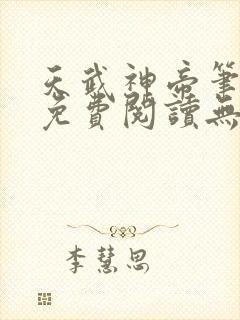 天武神帝筆
免費閱讀無
李慧思